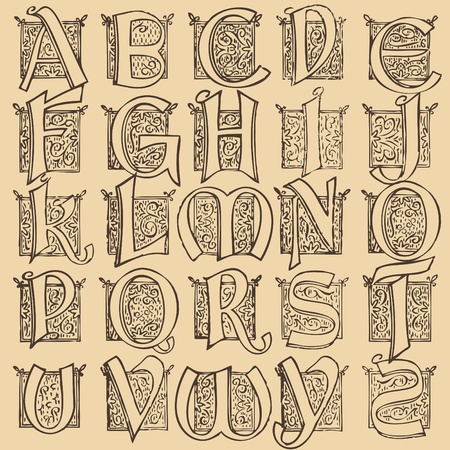 A B C D E
F G H I J
K L M N O
P Q R S T
U V W Y Z